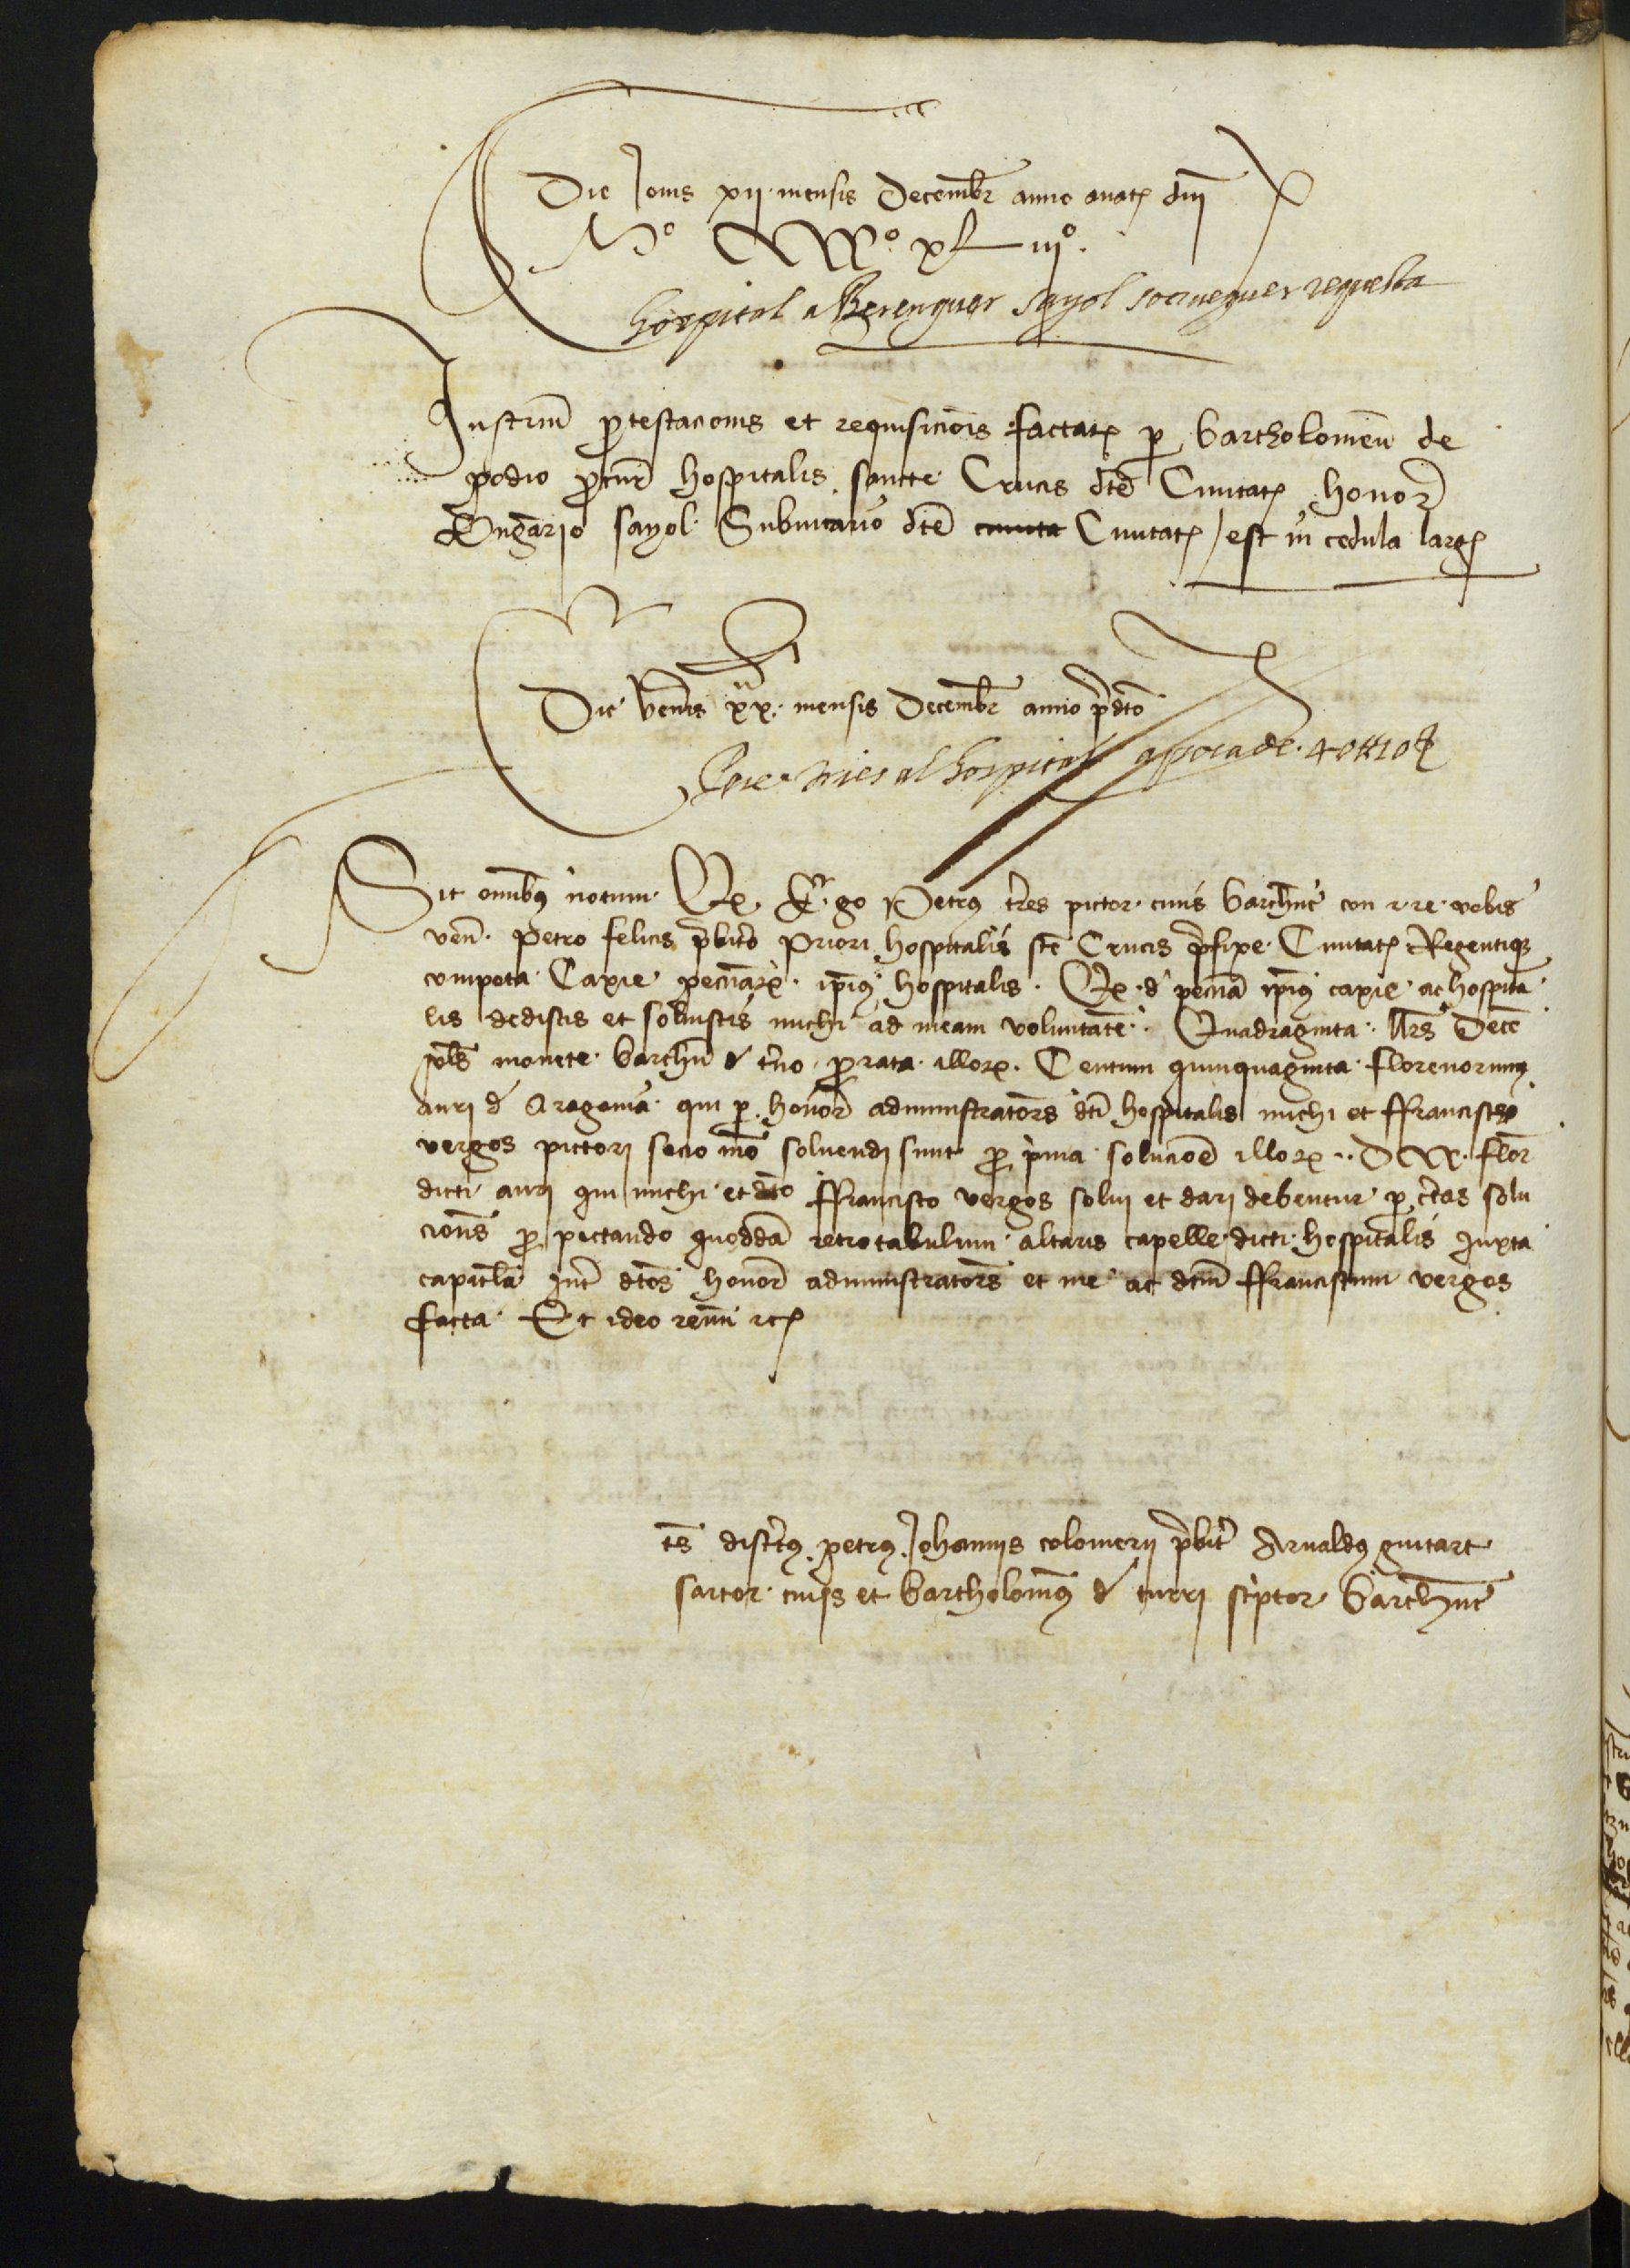 Die Jouis xij mensis Decembr̄ anno anatꝭ dnī
Mº CCCCº xL iijº
hospital a Berenguer sayol sotsueguer requesta
Instrum̄ ꝓtestacionis et requisicōis factarꝝ ꝑ bartholomeū de
podio ꝓcur̄ hospitalis sancte Crucis dc̄e Ciuitatꝭ honor̄
Bn̄gario sayol Subuicario dc̄e ciuita Ciuitatꝭ / est in cedula largꝭ
Die ven̄is xx mensis Decembr̄ anno p̄dc̄o
Pere tries al hospital apocha de 40 ₶ 10 ẞ
Sit omībꝫ notum Qꝫ Ego Petrꝰ tr̄es pictor ciuis barchn̄e con & re vobis
ven̄ Petro felicis p̄bit̄o Priori hospitalis sc̄e Crucis p̄fixe Ciuitatꝭ Regentiqꝫ
compota Caxie pecuniarꝝ ip̄iꝰ hospitalis Qꝫ de pecunia ip̄iꝰ caxie ac hospita
lis dedistis et soluistis michi ad meam voluntatē Quadraginta llr̄s Decē
sol̄s monete barchn̄ de t̄no ꝓ rata illorꝝ Centum quinquaginta florenorum
auri de Aragonia qui ꝑ honor̄ administrator̄s dc̄i hospitalis michi et ffrancisco
vergos pictori socio meo soluendi sunt ꝓ prima solucioē illorꝝ DCC flor̄
dicti auri qui michi et dc̄o ffrancisto vergos solui et dari debentur ꝑ c̄tas solu
cions̄ ꝓ pictando quoddā retrotabulum altaris capelle dicti hospitalis Juxta
capitl̄a Int̄ dc̄os honor̄ administrator̄s et me ac dc̄m ffranciscum vergos
facta Et ideo renn̄ ꝛcꝭ
ts̄ discr̄tꝰ petrꝰ Johannis colomerij p̄bit̄ Arnaldꝰ guitart
sartor ciuis et bartholomeꝰ de turri sc̄ptor barchn̄e